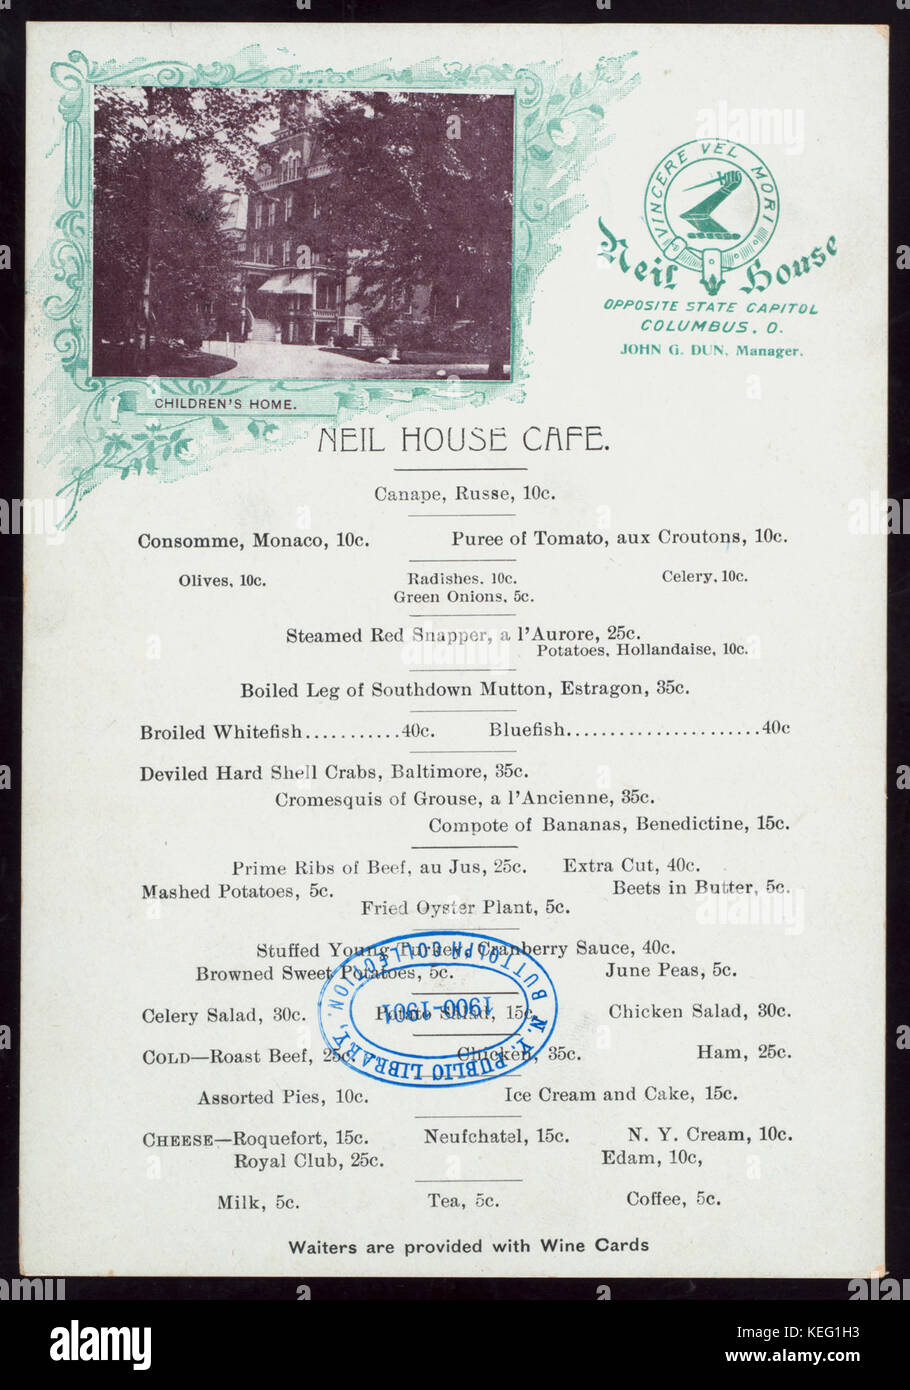 VINCERE VEL MORI
Neil House
OPPOSITE STATE CAPITOL
COLUMBUS, O.
JOHN G. DUN, Manager.
CHILDREN'S HOME.
NEIL HOUSE CAFE.
Canape, Russe, 10c.
Consomme, Monaco, 10c. Puree of Tomato, aux Croutons, 10c.
Olives, 10c. Radishes. 10c. Celery, 10c.
Green Onions, 5c.
Steamed Red Snapper, a l'Aurore, 25c.
Potatoes, Hollandaise, 10c.
Boiled Leg of Southdown Mutton, Estragon, 35c.
Broiled Whitefish...........40c. Bluefish......................40c
Deviled Hard Shell Crabs, Baltimore, 35c.
Cromesquis of Grouse, a l'Ancienne, 35c.
Compote of Bananas, Benedictine, 15c.
Prime Ribs of Beef, au Jus, 25c. Extra Cut, 40c.
Mashed Potatoes, 5c. Beets in Butter, 5c.
Fried Oyster Plant, 5c.
Stuffed Young Turkey, Cranberry Sauce, 40c.
Browned Sweet Potatoes, 5c. June Peas, 5c.
Celery Salad, 30c. Potato Salad, 15c. Chicken Salad, 30c.
COLD—Roast Beef, 25c. Chicken, 35c. Ham, 25c.
N. Y. PUBLIC LIBRARY,
BUTTOLPH COLLECTION.
1900-1901
Assorted Pies, 10c. Ice Cream and Cake, 15c.
CHEESE—Roquefort, 15c. Neufchatel, 15c. N. Y. Cream, 10c.
Royal Club, 25c. Edam, 10c,
Milk, 5c. Tea, 5c. Coffee, 5c.
Waiters are provided with Wine Cards
alamy
alamy
Image ID: KEG1H3
www.alamy.com